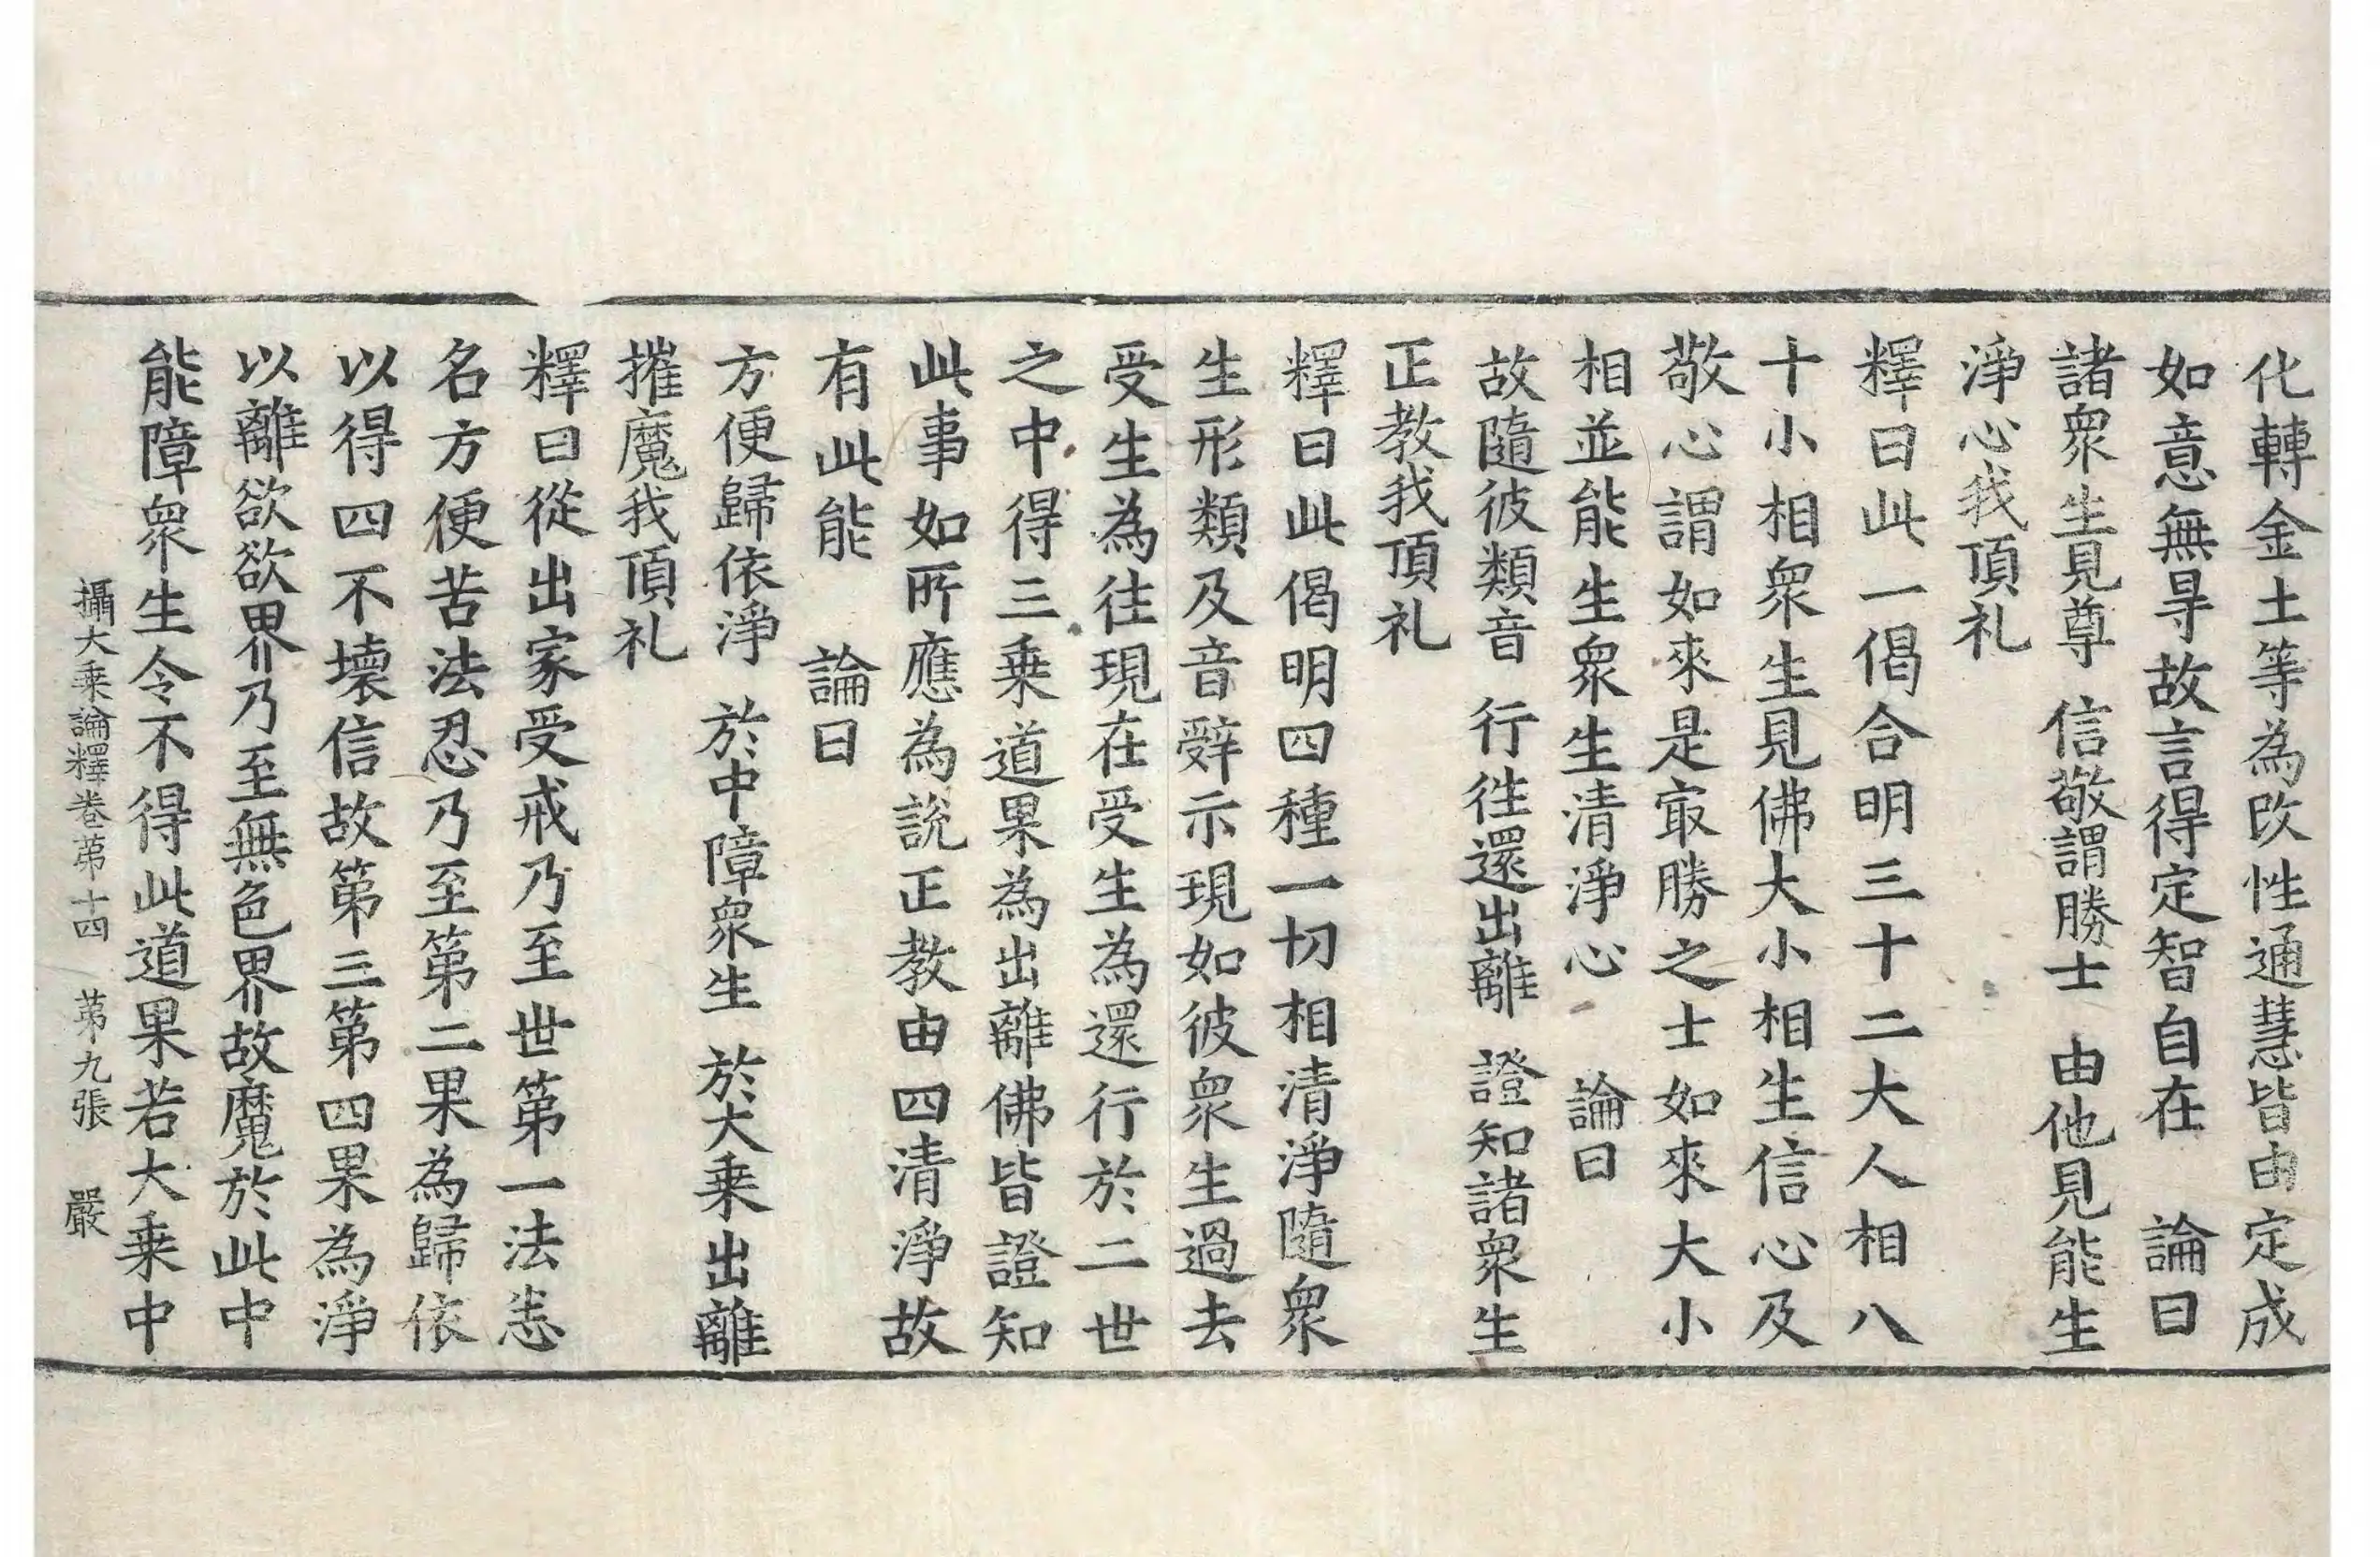 化轉金土等為改性通慧皆由定成
如意無㝵故言得定智自在　論曰
諸衆生見尊　信敬謂勝士　由他見能生
淨心我頂礼
釋曰此一偈合明三十二大人相八
十小相衆生見佛大小相生信心及
敬心謂如來是㝡勝之士如來大小
相並能生衆生清淨心　論曰
故隨彼類音　行徃還出離　證知諸衆生
正教我頂礼
釋曰此偈明四種一切相清淨隨衆
生形類及音辤示現如彼衆生過去
受生為徃現在受生為還行於二世
之中得三乗道果為出離佛皆證知
此事如所應為說正教由四清淨故
有此能　論曰
方便歸依淨　於中障衆生　於大乗出離
摧魔我頂礼
釋曰從出家受戒乃至世第一法恙
名方便苦法忍乃至第二果為歸依
以得四不壞信故第三第四果為淨
以離欲欲界乃至無色界故魔於此中
能障衆生令不得此道果若大乗中
攝大乗論釋卷苐十四　苐九張　嚴